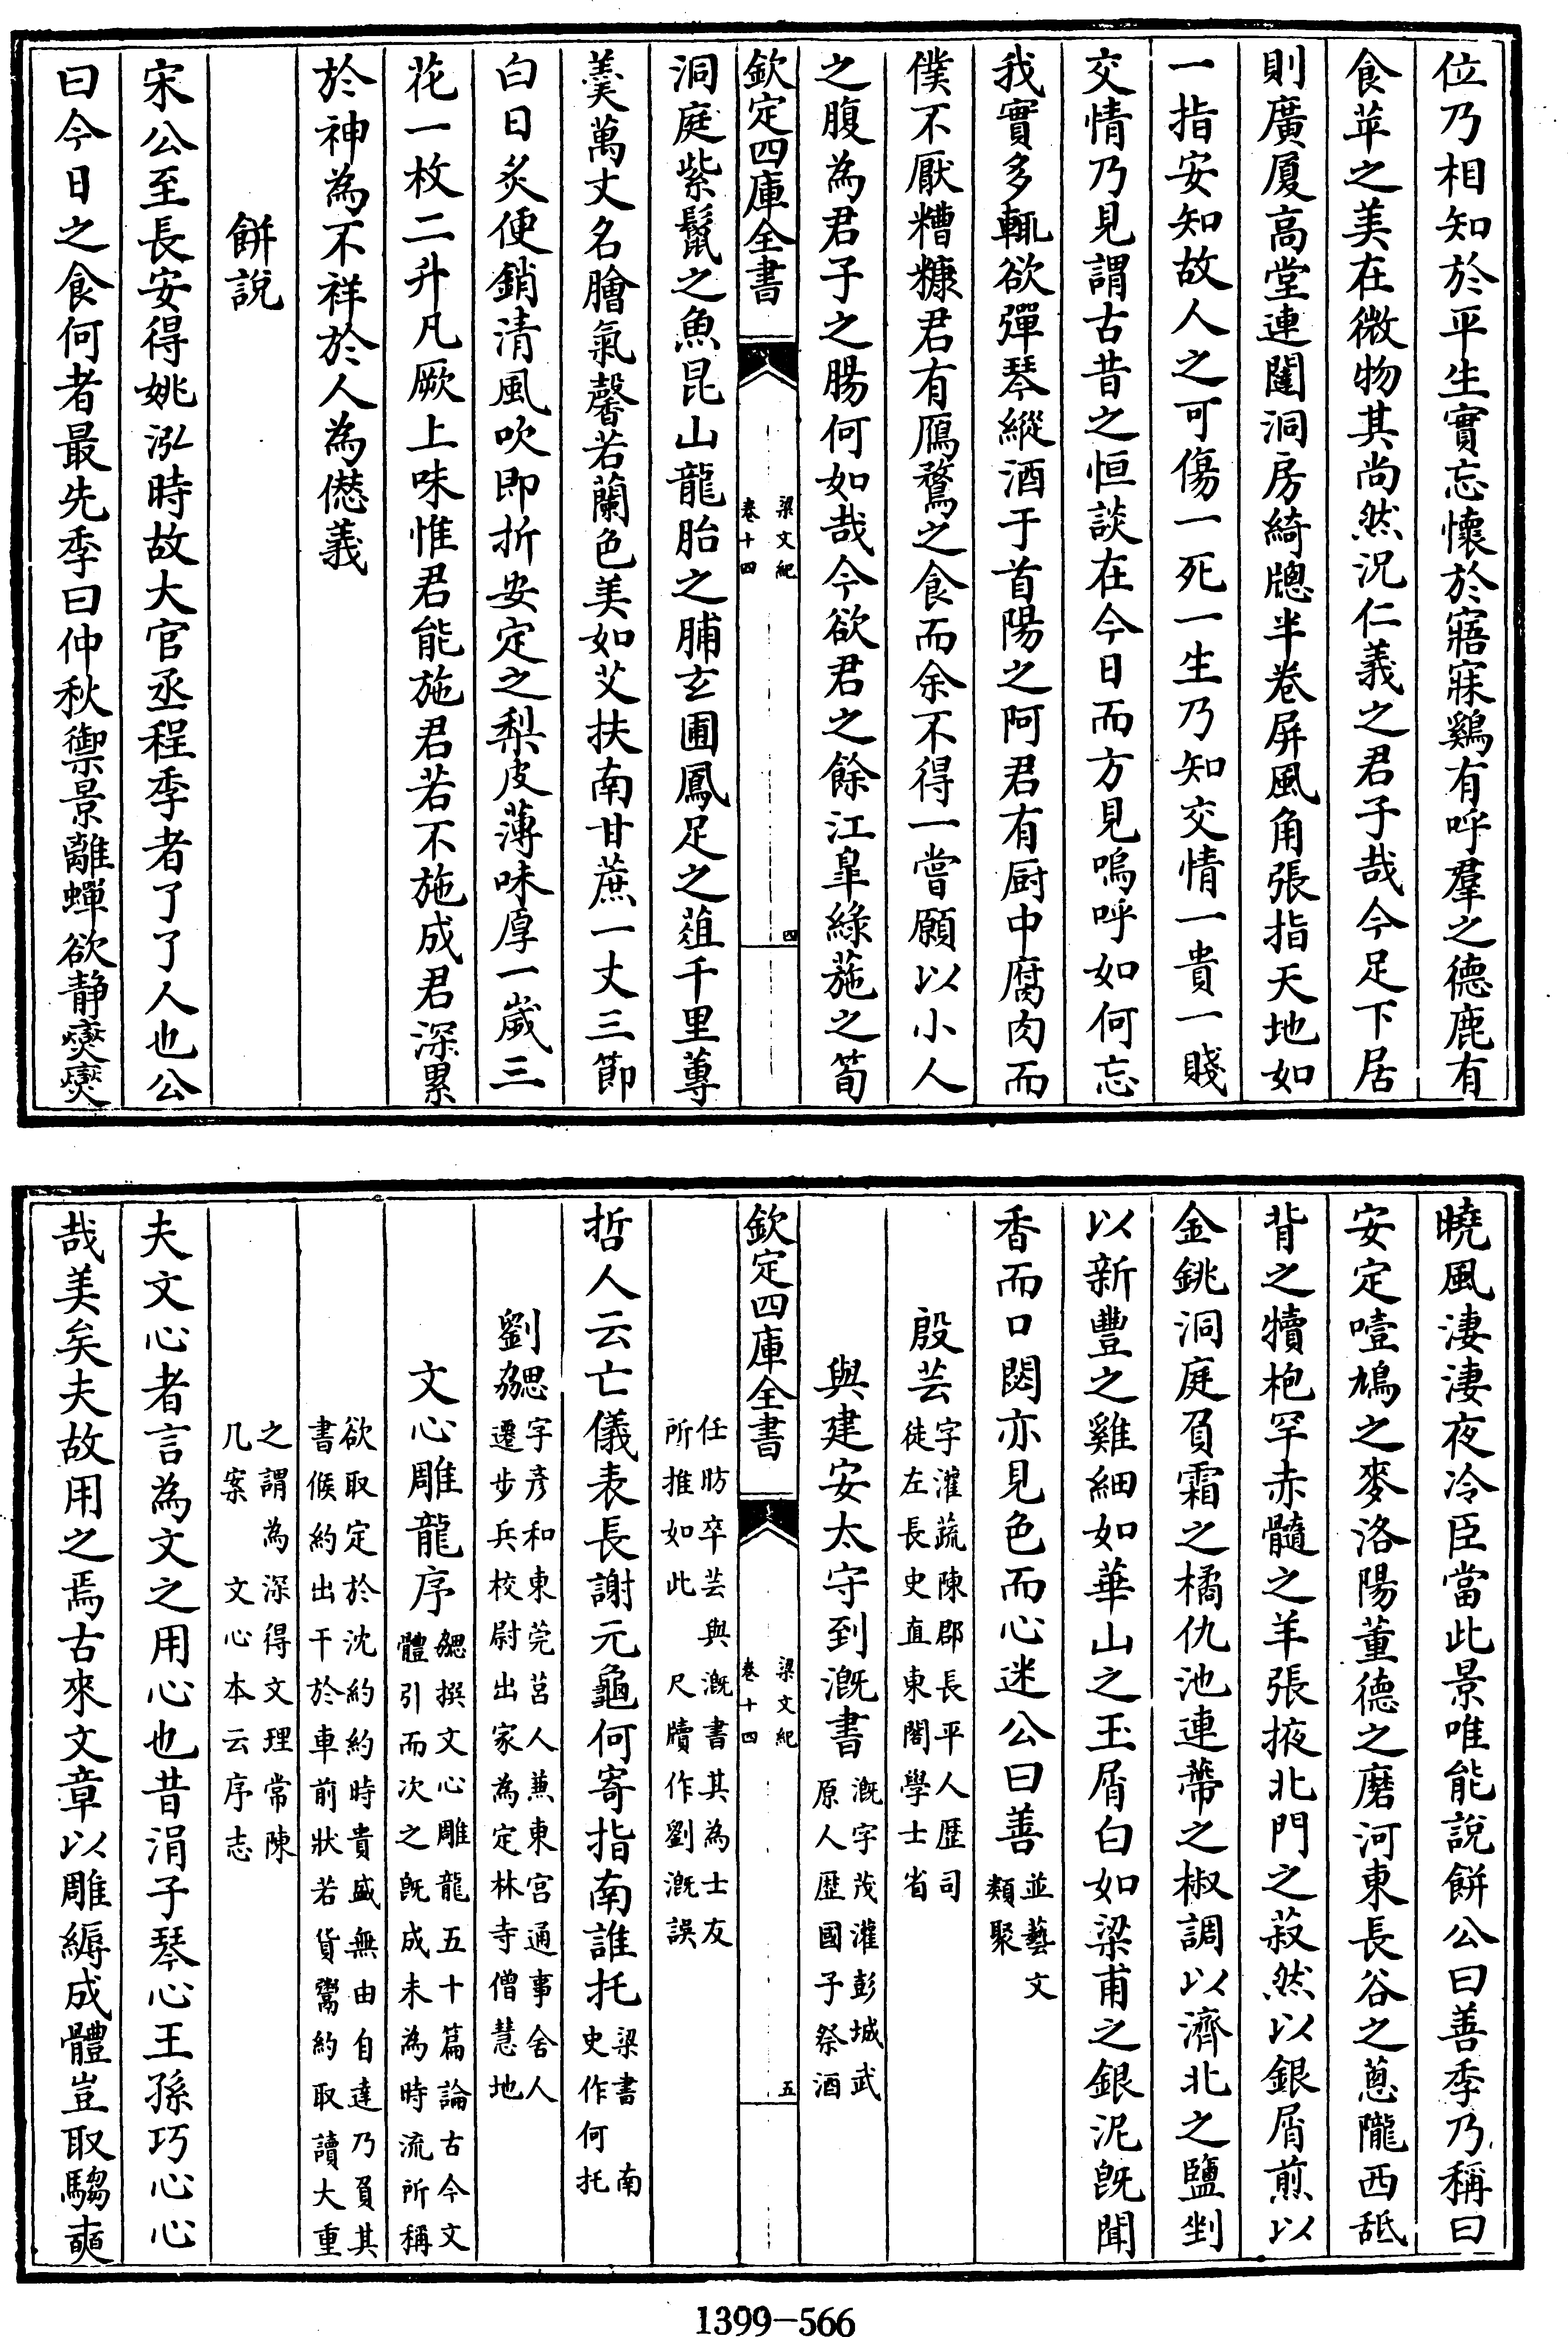 位乃相知於平生實忘懷於寤寐鷄有呼羣之德鹿有
食苹之美在微物其尚然况仁義之君子哉今足下居
則廣厦高堂連闥洞房綺牎半卷屏風角張指天地如
一指安知故人之可傷一死一生乃知交情一貴一賤
交情乃見謂古昔之恒談在今日而方見嗚呼如何忘
我實多輒欲彈琴縱酒于首陽之阿君有厨中腐肉而
僕不厭糟糠君有鴈鶩之食而余不得一嘗願以小人
之腹為君子之腸何如哉今欲君之餘江臯綠葹之筍
欽定四庫全書 梁文紀 卷十四 四
洞庭紫鬣之魚昆山龍胎之脯玄圃鳳足之葅千里蓴
羮萬丈名膾氣馨若蘭色美如艾扶南甘蔗一丈三節
白日炙便銷清風吹即折安定之梨皮薄味厚一歲三
花一枚二升凡厥上味惟君能施君若不施成君深累
於神為不祥於人為僁義
餅說
宋公至長安得姚泓時故大官丞程季者了了人也公
曰今日之食何者最先季曰仲秋御景離蟬欲静燮燮
曉風淒淒夜冷臣當此景唯能說餅公曰善季乃稱曰
安定噎鳩之麥洛陽董德之磨河東長谷之蔥隴西舐
背之犢枹罕赤髓之羊張掖北門之菽然以銀屑煎以
金銚洞庭負霜之橘仇池連蔕之椒調以濟北之鹽剉
以新豐之雞細如華山之玉屑白如梁甫之銀泥既聞
香而口悶亦見色而心迷公曰善 並藝文類聚
殷芸 字灌蔬陳郡長平人歷司徒左長史直東閣學士省
與建安太守到溉書 溉字茂灌彭城武原人歷國子祭酒
欽定四庫全書 梁文紀 卷十四 五
任昉卒芸與溉書其為士友所推如此 尺牘作劉溉誤
哲人云亡儀表長謝元龜何寄指南誰托 梁書 南史作何托
劉勰 字彦和東莞莒人兼東宫通事舍人遷步兵校尉出家為定林寺僧慧地
文心雕龍序 勰撰文心雕龍五十篇論古今文體引而次之既成未為時流所稱
欲取定於沈約約時貴盛無由自達乃負其書候約出干於車前狀若貨鬻約取讀大重
之謂為深得文理常陳几案 文心本云序志
夫文心者言為文之用心也昔涓子琴心王孫巧心心
哉美矣夫故用之焉古來文章以雕縟成體豈取騶奭
1399-566